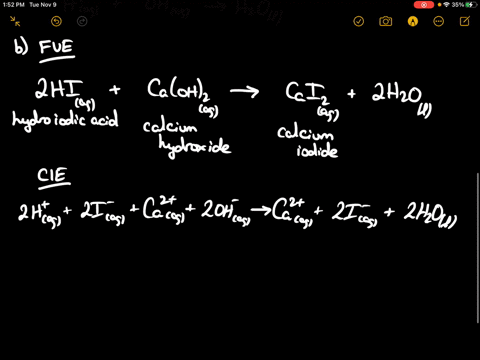 1:52 PM Tue Nov 9
35%
b) FUE
2HI(aq) + Ca(OH)₂(aq) → CaI₂(aq) + 2H₂O(l)
hydroiodic acid calcium hydroxide calcium iodide
CIE
2H⁺(aq) + 2I⁻(aq) + Ca²⁺(aq) + 2OH⁻(aq) → Ca²⁺(aq) + 2I⁻(aq) + 2H₂O(l)